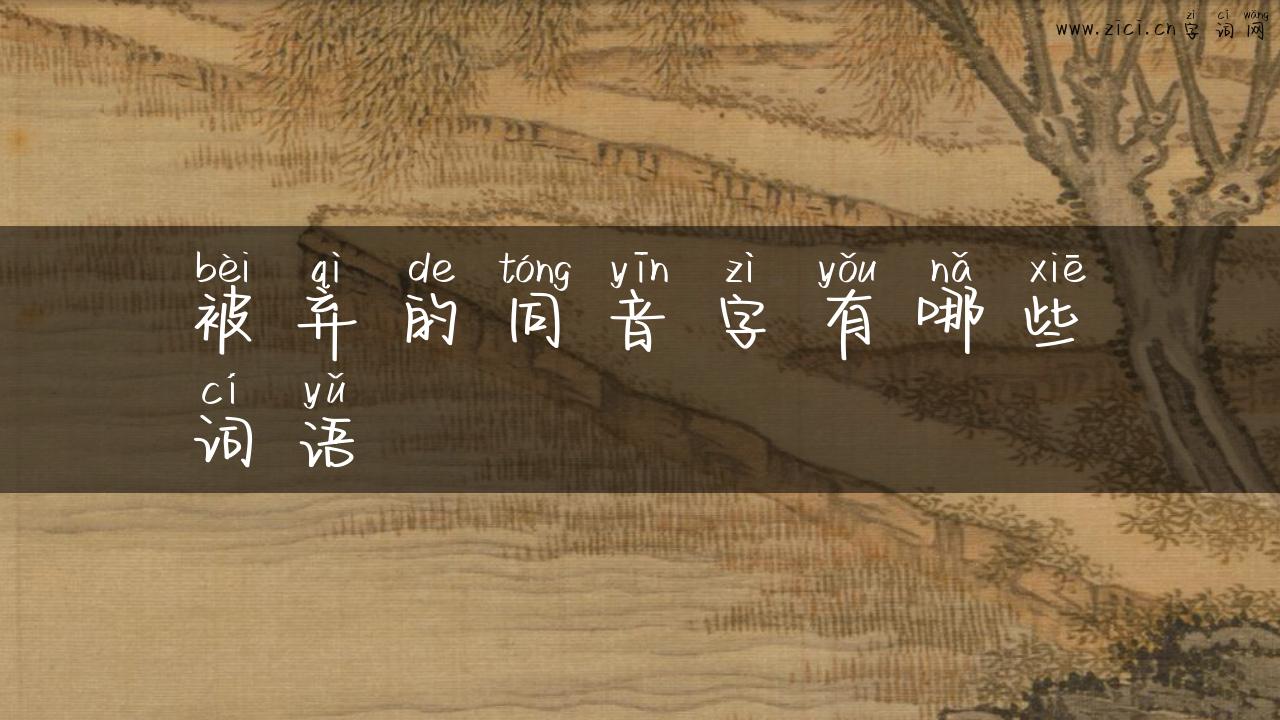 zì cí wǎng
www.zici.cn字词网
bèi qì de tóng yīn zì yǒu nǎ xiē
被弃的同音字有哪些
cí yǔ
词语